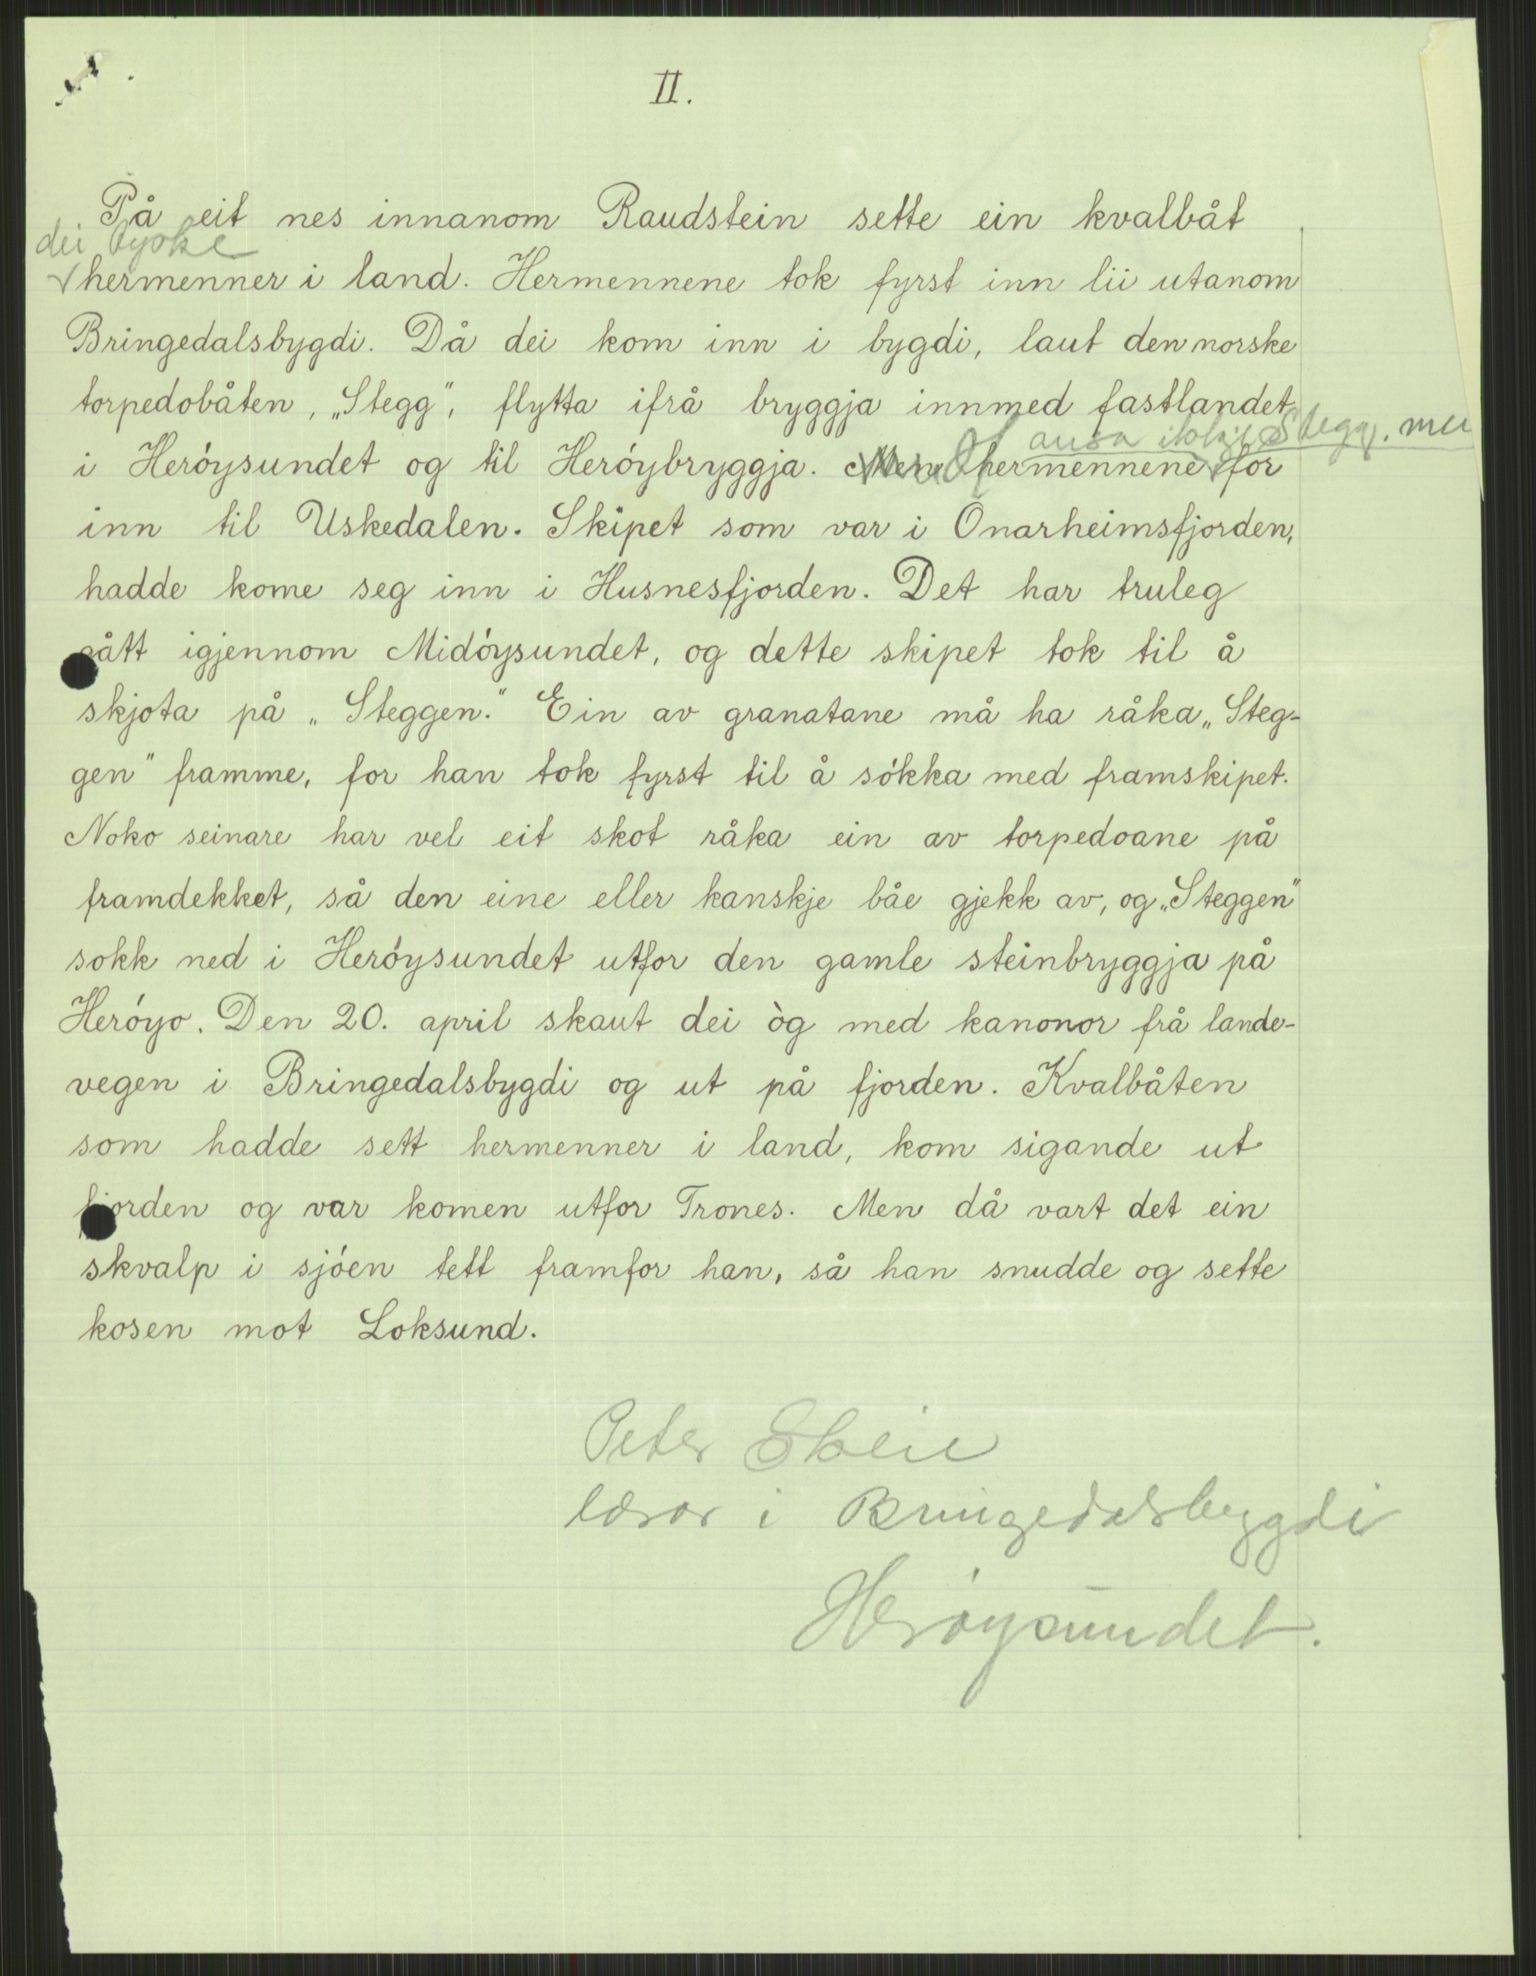 II.
På eit nes innanom Raudstein sette ein kvalbåt
dei tyske
hermenner i land. Hermennene tok fyrst inn lii utanom
Bringedalsbygdi. Då dei kom inn i bygdi, laut den norske
torpedobåten, „Stegg", flytta ifrå bryggja innmed fastlandet
ansa ikkje Stegg. men
i Herøysundet og til Herøybryggja. Men hermennene for
inn til Uskedalen. Skipet som var i Onarheimsfjorden,
hadde kome seg inn i Husnesfjorden. Det har truleg
gått igjennom Midøysundet, og dette skipet tok til å
skjota på „Steggen." Ein av granatane må ha råka „Steg-
gen" framme, for han tok fyrst til å søkka med framskipet.
Noko seinare har vel eit skot råka ein av torpedoane på
framdekket, så den eine eller kanskje båe gjekk av, og „Steggen"
sokk ned i Herøysundet utfor den gamle steinbryggja på
Herøyo. Den 20. april skaut dei òg med kanonor frå lande-
vegen i Bringedalsbygdi og ut på fjorden. Kvalbåten
som hadde sett hermenner i land, kom sigande ut
fjorden og var komen utfor Trones. Men då vart det ein
skvalp i sjøen tett framfor han, så han snudde og sette
kosen mot Loksund.
Peter Skeie
lærar i Bringedalsbygdi
Herøysundet.